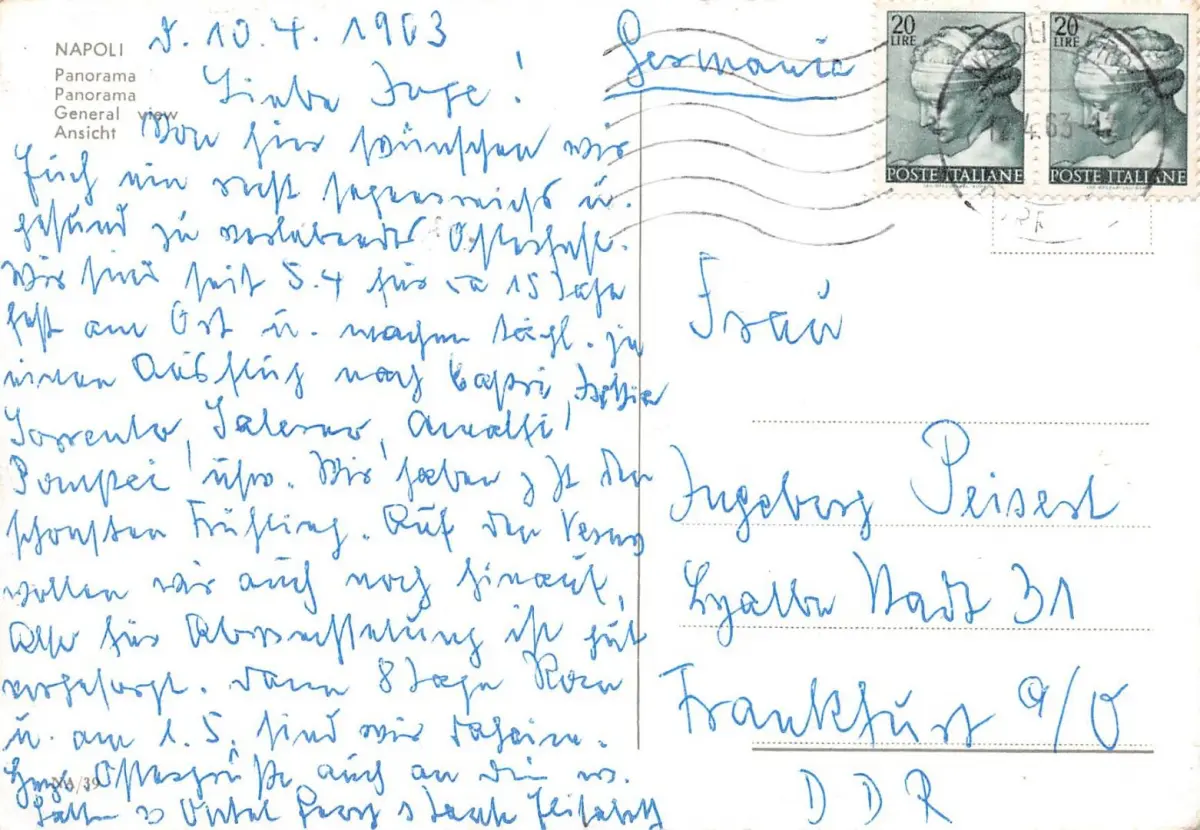 NAPOLI
Panorama
Panorama
General view
Ansicht
d. 10.4.1963
Liebe Inge!
Von hier wünschen wir
Euch ein recht segensreich u.
gesund zu verlebendes Osterfest.
Wir sind seit 5.4 für ca 15 Tage
fest am Ort u. machen tägl.
einen Ausflug nach Capri, Ischia
Sorrento, Salerno, Amalfi,
Pompei usw. Wir haben z Zt den
schönsten Frühling. Auf den Vesuv
wollen wir auch noch hinauf,
Also für Abwechselung ist gut
vorgesorgt. Dann 8 Tage Rom
u. am 1.5. sind wir daheim.
Herzl. Ostergrüße auch an die
Onkel Georg Tante Elisabeth
NA/39
Germania
20
LIRE
POSTE ITALIANE
20
LIRE
POSTE ITALIANE
NAPOLI
4.63
Frau
Ingeborg Peisert
Stadt 31
Frankfurt a/O
DDR